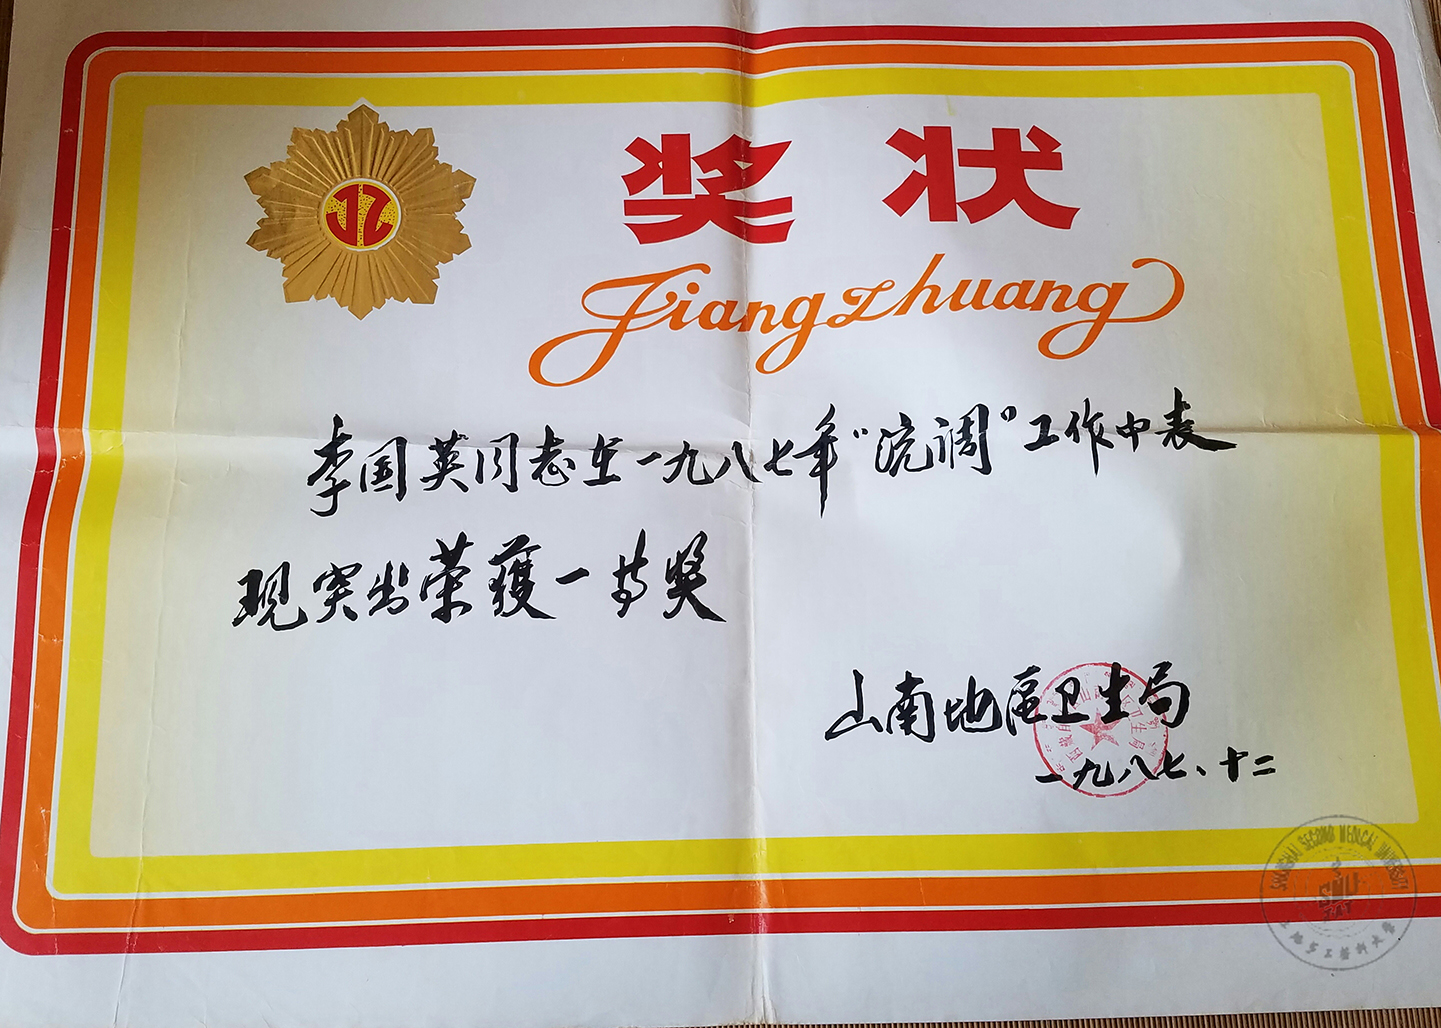 奖状
Jiangzhuang
李国英同志在一九八七年“流调”工作中表
现突出荣獲一等奖
山南地區卫生局
一九八七、十二
SHANGHAI SECOND MEDICAL UNIVERSITY